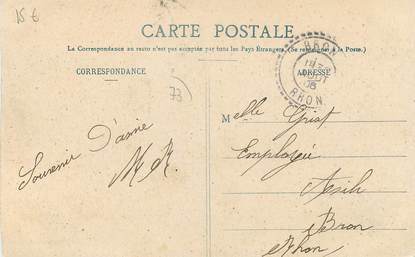 15 €
CARTE POSTALE
La Correspondance au recto n'est pas acceptée par tous les Pays Etrangers. (Se renseigner à la Poste.)
CORRESPONDANCE
ADRESSE
BRON
AOUT
RHON
73
Melle Griot
Employée
Asile
Bron
Rhon
Souvenir D'amie
M R